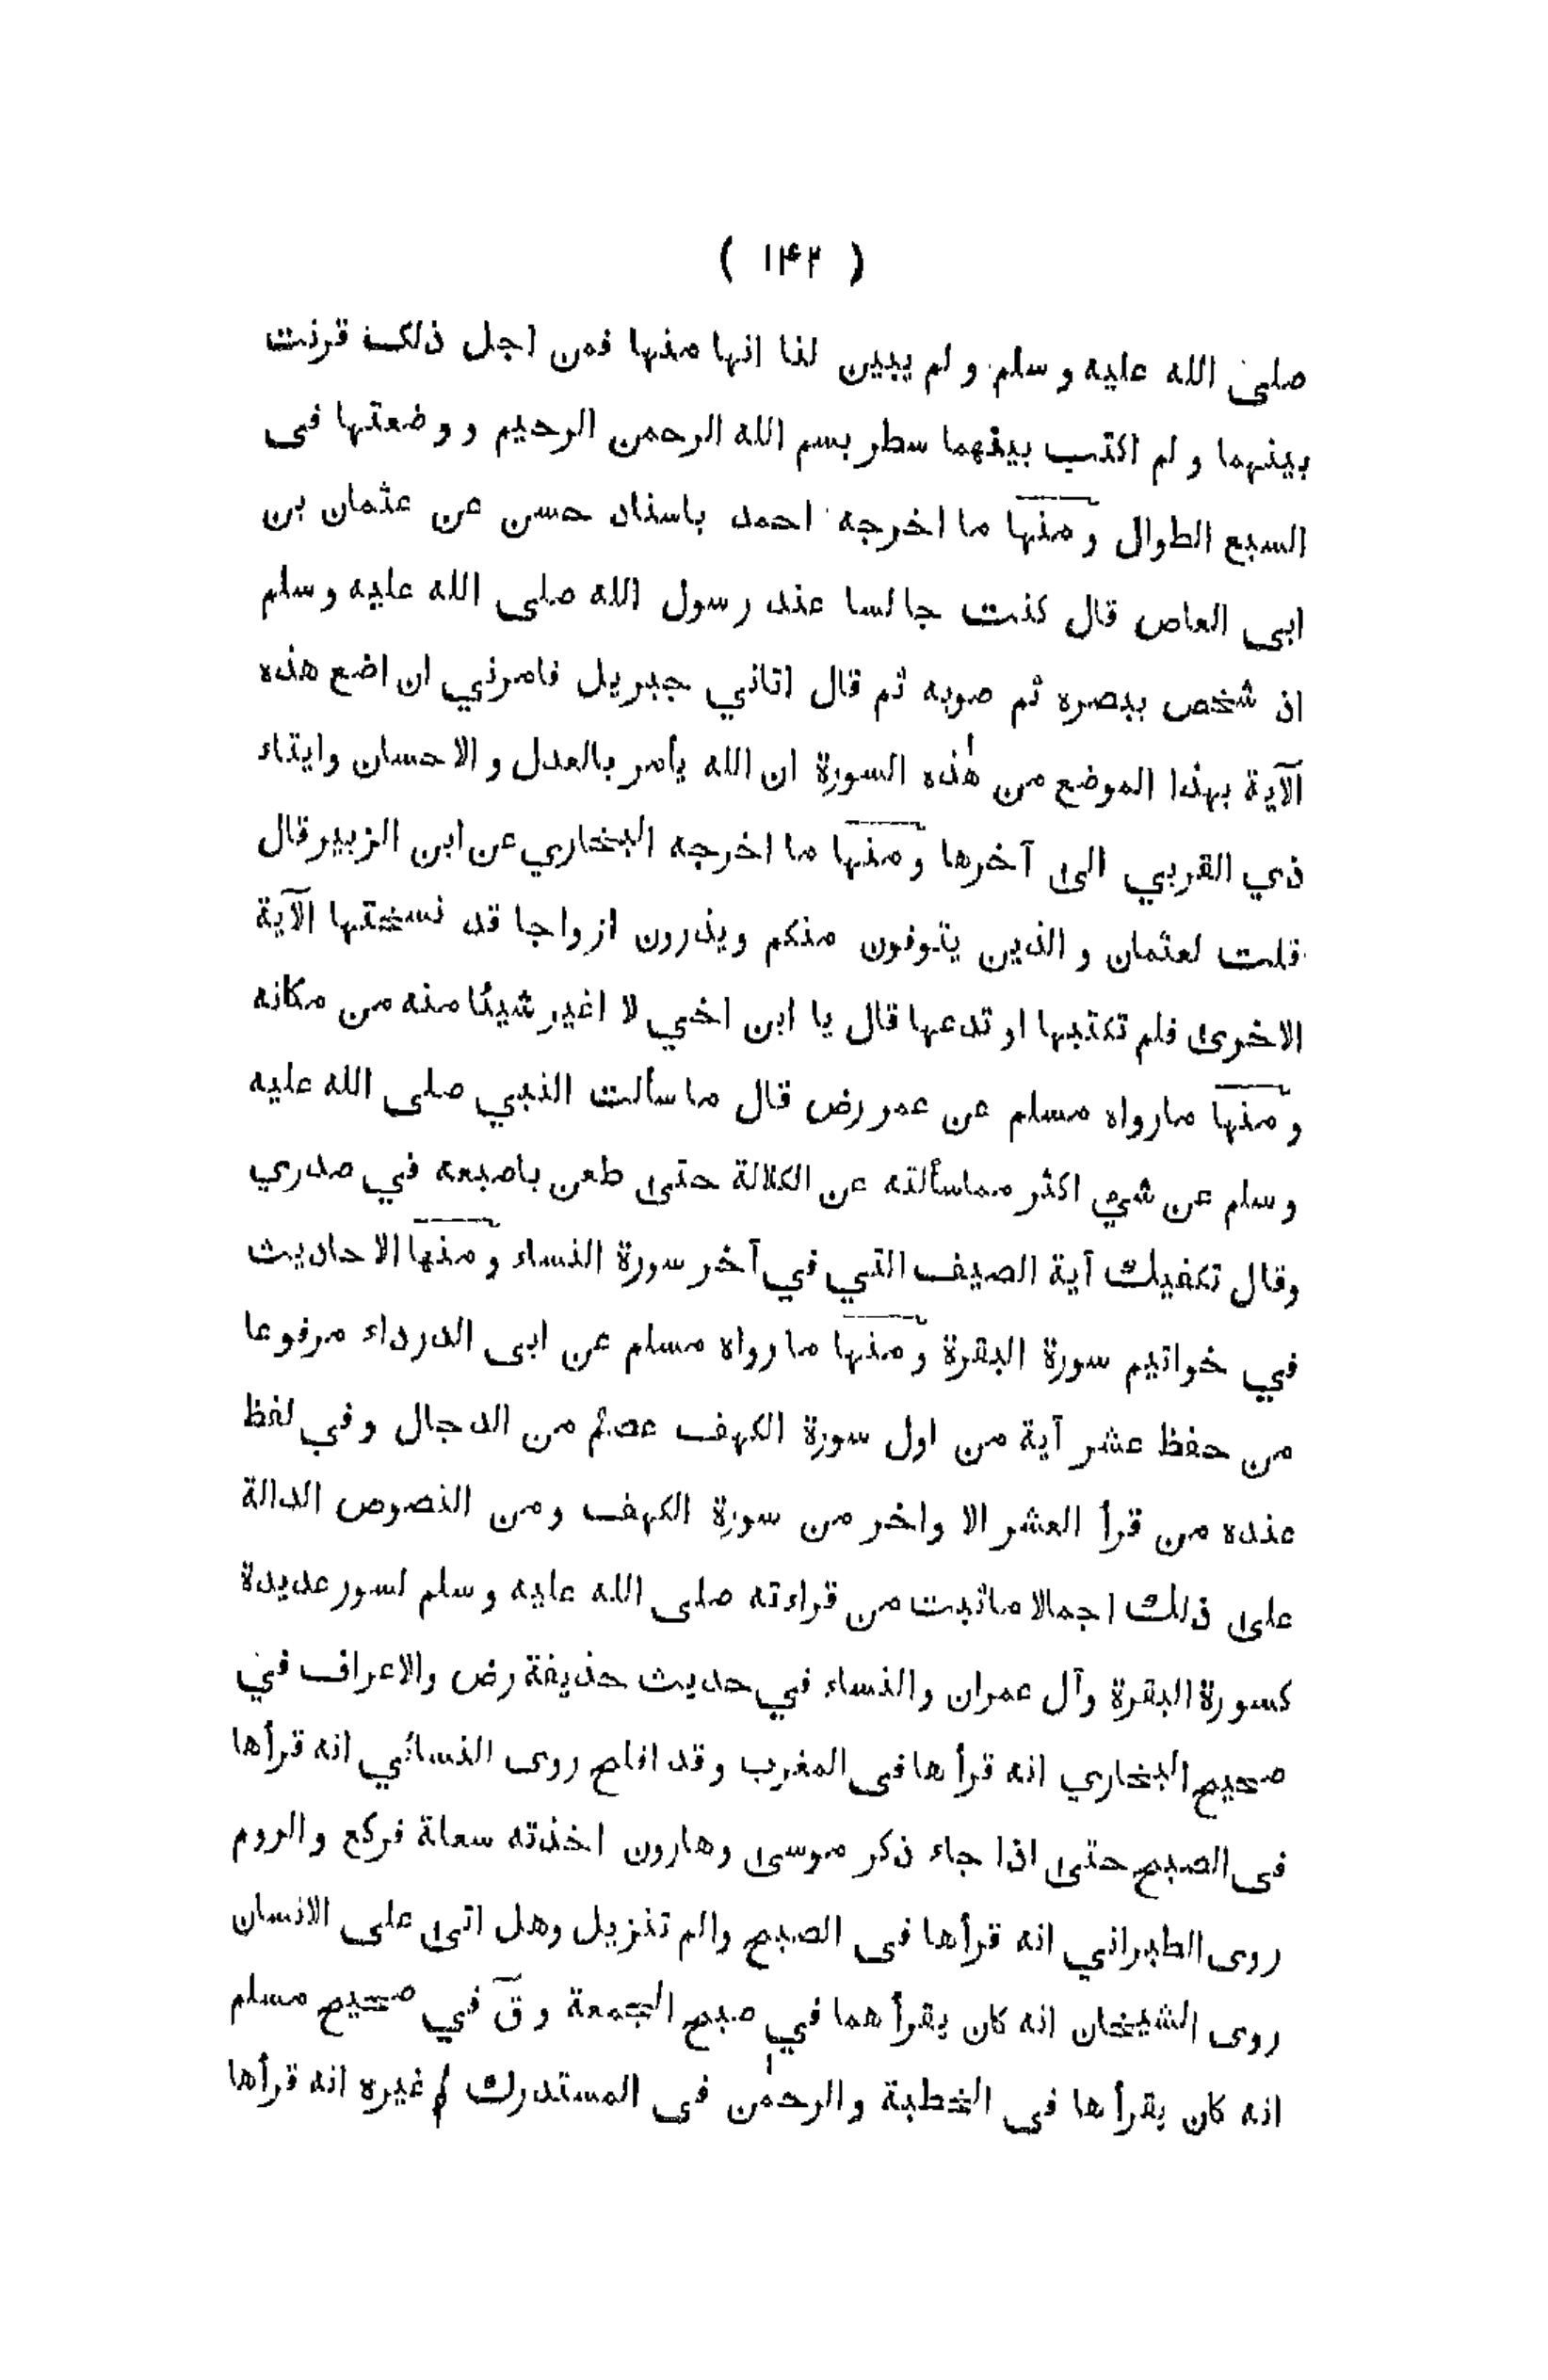 ( ۱۴۲ )
صلى الله عليه و سلم و لم يبين لنا انها منها فمن اجل ذلك قرنت
بينهما و لم اكتب بينهما سطر بسم الله الرحمن الرحيم و وضعتها فى
السبع الطوال و منها ما اخرجه احمد باسناد حسن عن عثمان بن
ابى العاص قال كنت جالسا عند رسول الله صلى الله عليه و سلم
اذ شخص ببصره ثم صوبه ثم قال اتاني جبريل فامرني ان اضع هذه
الآية بهذا الموضع من هٰذه السورة ان الله يأمر بالعدل و الاحسان وايتاء
ذي القربي الى آخرها و منها ما اخرجه البخاري عن ابن الزبير قال
قلت لعثمان و الذين يتوفون منكم ويذرون ازواجا قد نسختها الآية
الاخرى فلم تكتبها او تدعها قال يا ابن اخي لا اغير شيئا منه من مكانه
و منها مارواه مسلم عن عمر رض قال ما سألت النبي صلى الله عليه
و سلم عن شي اكثر مماسألته عن الكلالة حتى طعن باصبعه في صدري
وقال تكفيك آية الصيف التي في آخر سورة النساء و منها الاحاديث
في خواتيم سورة البقرة و منها ما رواه مسلم عن ابى الدرداء مرفوعا
من حفظ عشر آية من اول سورة الكهف عصم من الدجال و في لفظ
عنده من قرأ العشر الا واخر من سورة الكهف ومن النصوص الدالة
على ذلك اجمالا ماثبت من قراءته صلى الله عليه و سلم لسور عديدة
كسورة البقرة وآل عمران والنساء في حديث حذيفة رض والاعراف في
صحيح البخاري انه قرأ ها فى المغرب و قد افلح روى النسائي انه قرأها
فى الصبح حتى اذا جاء ذكر موسى وهارون اخذته سعلة فركع والروم
روى الطبراني انه قرأها فى الصبح والم تنزيل وهل اتى على الانسان
روى الشيخان انه كان يقرأ هما في صبح الجمعة و قٓ في صحيح مسلم
انه كان يقرأ ها فى الخطبة والرحمٰن فى المستدرك و غيره انه قرأها